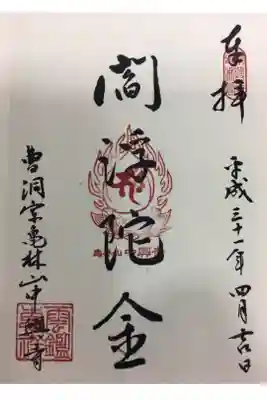 奉拝
平成三十一年四月吉日
閻浮陀金
曹洞宗亀林山中興寺